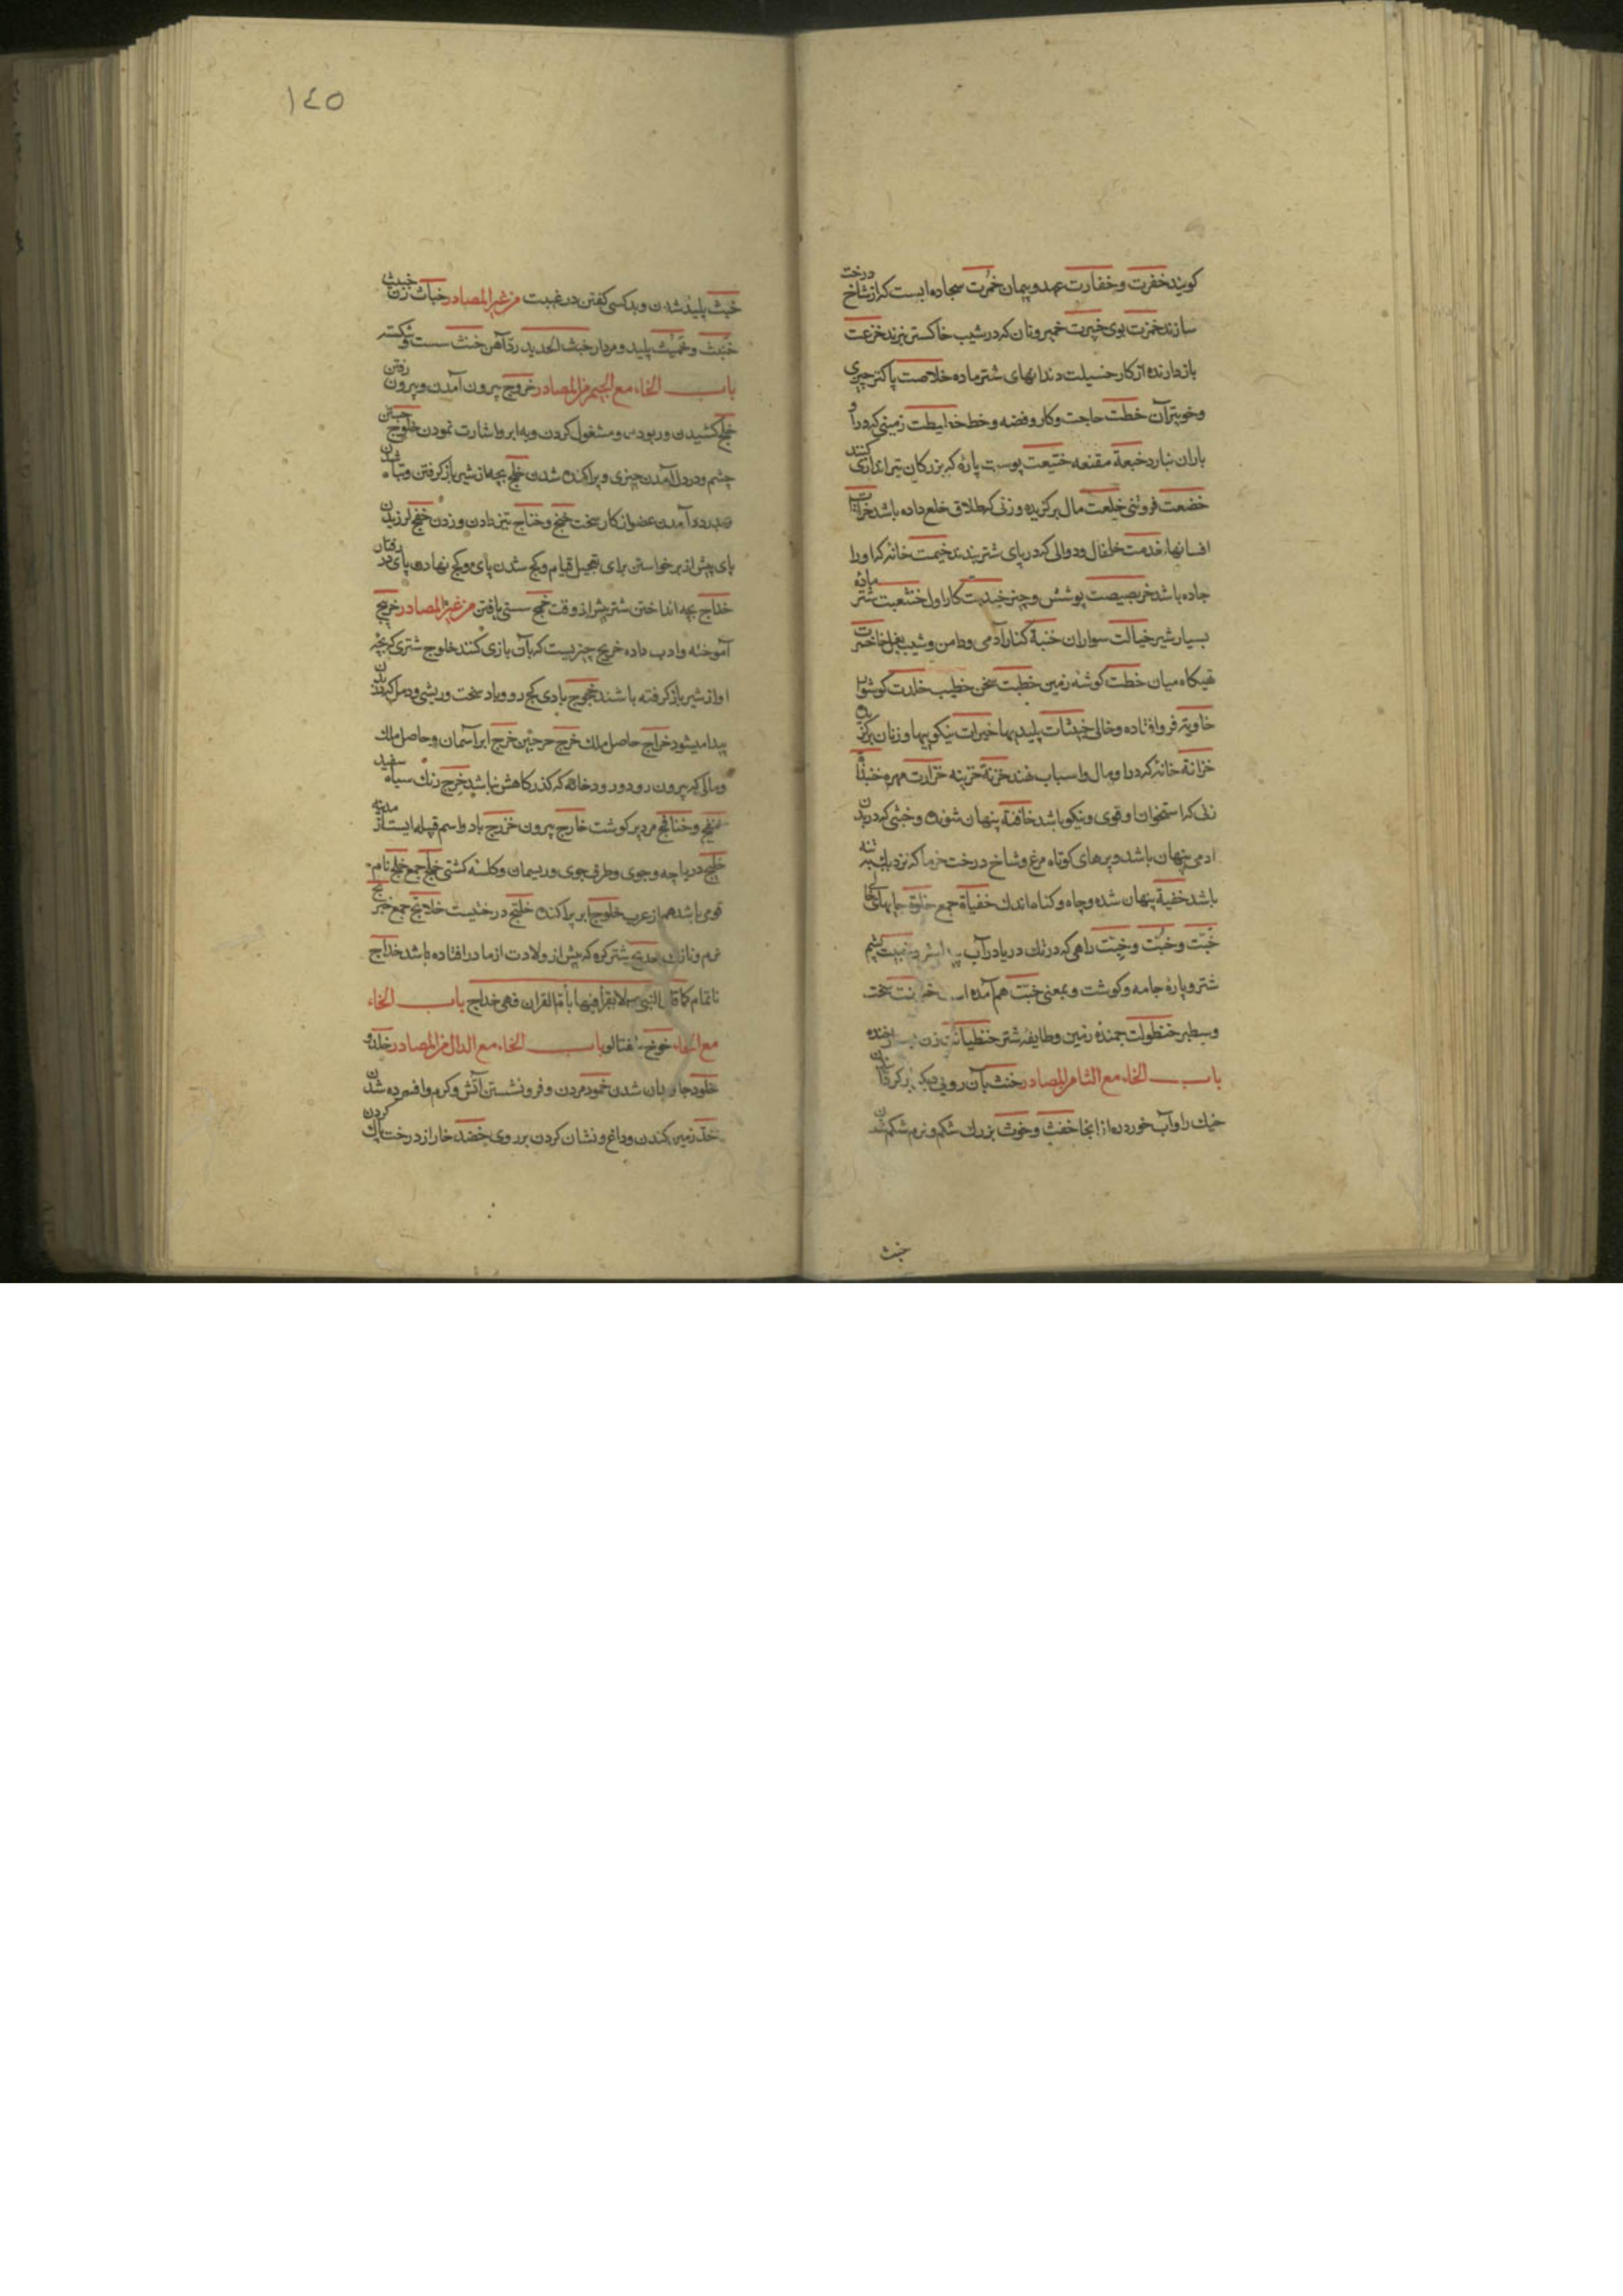 کویند خفرت و خفارت عهد و پیمان خمرت سجاده ایست که از شاخ درخت
سازند خمرت بوی خبرت خمیر و نان که در شیب خاکستر پزند خزعت
بازدارنده از کار خسیلت دندانهای شتر ماده خلاصت پاکتر چیزی
و خوبتر آن خطت حاجت و کار و قصه و خط خطیطت زمینی که در او
باران نبارد خبعة مقنعه ختیعت پوست پارۀ که بزرکان تیر اندازی کنند
خضعت فروتنی خلیعت مال برکزیده و زنی که طلاق خلع داده باشد خرافات
افسانها خدمت خلخال و دوالی که در پای شتر بندند خیمت خانۀ که او را
جاده باشد خربصیصت پوشش و چیز خیدبت کار اول خنثعبت شتر ماده
بسیار شیر خیالت سواران خبنة کنار آدمی و دامن و شیب بغل خاصرت
تهیکاه میان خطت کوشۀ زمین خطبت سخن خطیب خلدت کوشوار
خاویة فرو افتاده و خالی خبیثات پلیدیها خیرات نیکوییها و زنان برکزیده
خزانة خانۀ که در او مال و اسباب نهند خزنة خزینه خزارت مهره خبنداة
زنی که استخوان او قوی و نیکو باشد خافیة پنهان شونده و جنی که در بدن
ادمی پنهان باشد و پرهای کوتاه مرغ و شاخ درخت خرما که نزدیک به تنه
باشد خفیة پنهان شده و چاه و کناه اندک خفیاة جمع خلوة جایهای خالی
خبت و خبت و خبت راهی که در ریک دریا در آب پشم
شتر و پارۀ جامه و کوشت و بمعنی خبت هم آمده سخت
و سطبر خنظولت جمندۀ زمین و طایفۀ شتر خنظیانت زن
باب الخاء مع الثا من المصادر خنث بآن رویی دیکر
خیک را و آب خوردن از انجا خفث و خوث بزرک شکم و نرم شکم شدن
خبث
١٤٥
خبث پلید شدن و بد کسی کفتن در غیبت من غیر المصادر خباث زن خبیث
خبث و خبیث پلید و مردار خبث الحدید ردّ آهن خنث سست و شکسته
باب الخاء مع الجیم من المصادر خروج بیرون آمدن و بیرون رفتن
خلج کشیدن و ربودن و مشغول کردن و به ابرو اشارت نمودن خلوج جستن
چشم و در دل آمدن چیزی و پراکنده شدن خلج بچه از شیر باز کرفتن و تباه شدن
و بدرد آمدن عضو از کار سخت خبج و خناج تیز دادن و زدن خفج لرزیدن
پای پیش از برخواستن برای تعجیل قیام و کج شدن پای و کج نهادن پای در رفتن
خداج بچه انداختن شتر پیش از وقت خمج سستی یافتن من غیر المصادر خریج
آموخته و ادب داده خریج چیزیست که بآن بازی کنند خلوج شتری که بچه
او از شیر باز کرفته باشند خجوج بادی کج رو و باد سخت و ریشی و دمل که در بدن
پیدا میشود خراج حاصل ملک خرج خرجین خرج ابر آسمان و حاصل ملک
و مالی که بیرون رود و رودخانۀ که کذرکاهش نباشد خرج رنک سیاه سفید
خنبج و خنافج مرد پر کوشت خارج بیرون خزرج باد و اسم قبیله ایست از مدینه
خلیج دریاچه و جوی و طرف جوی و ریسمان و کلسۀ کشتی خلج جمع خلج نام
قومی باشد هم از عرب خلوج ابر پراکنده خلنج درختیست خلانج جمع خبربج
نرم و نازک خدیج شتر کره که پیش از ولادت از مادر افتاده باشد خداج
ناتمام کما قال النبی لا یقرأ فیها بأم القران فهی خداج باب الخاء
مع الخاء خوخ شفتالو باب الخاء مع الدال من المصادر خلد و
خلود جاویدان شدن خمود مردن و فرو نشستن آتش و کرم و افسرده شدن
خد زمین کندن و داغ و نشان کردن بر روی خضد خار از درخت پاک کردن